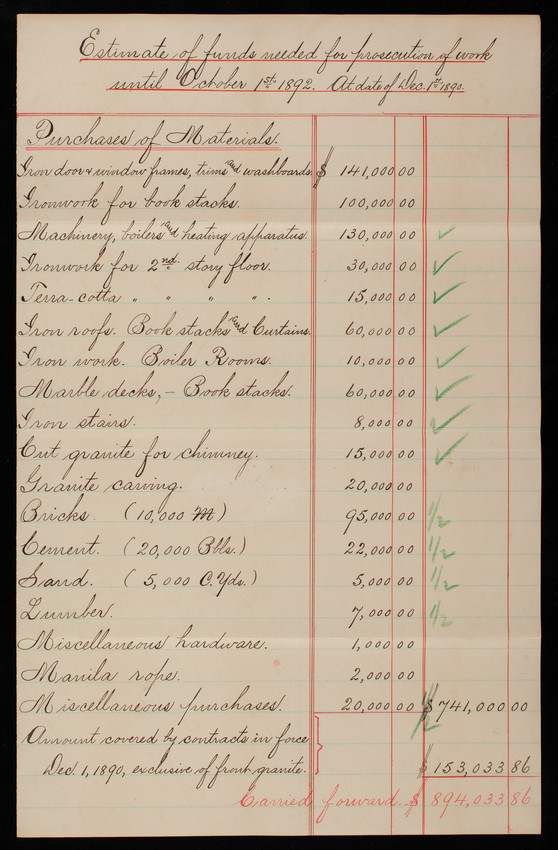 Estimate of funds needed for prosecution of work
until October 1st 1892. At date of Dec. 1st 1890.
Purchases of Materials.
Iron door & window frames, trims and washboards. $ 141,000 00
Ironwork for book stacks. 100,000 00
Machinery, boilers and heating apparatus. 130,000 00 ✓
Ironwork for 2nd. story floor. 30,000 00 ✓
Terra-cotta " " " " . 15,000 00 ✓
Iron roofs. Book stacks and Curtains. 60,000 00 ✓
Iron work. Boiler Rooms. 10,000 00 ✓
Marble decks, - Book stacks. 60,000 00 ✓
Iron stairs. 8,000 00 ✓
Cut granite for chimney. 15,000 00 ✓
Granite carving. 20,000 00
Bricks. (10,000 M) 95,000 00 1/2
Cement. (20,000 Bbls.) 22,000 00 1/2
Sand. (5,000 C. Yds.) 5,000 00 1/2
Lumber. 7,000 00 1/2
Miscellaneous hardware. 1,000 00
Manila rope. 2,000 00
Miscellaneous purchases. 20,000 00 1/2 $ 741,000 00
Amount covered by contracts in force
Dec. 1, 1890, exclusive of front granite. $ 153,033 86
Carried forward.. $ 894,033 86